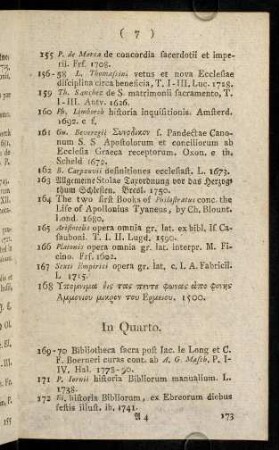 ( 7 )
155 P. de Marca de concordia sacerdotii et impe-
rii. Frf. 1708.
156-58 L. Thomassini vetus et nova Ecclesiae
disciplina circa beneficia, T. I-III. Luc. 1728.
159 Th. Sanchez de S. matrimonii sacramento, T.
I-III. Antv. 1626.
160 Ph. Limborch historia inquisitionis. Amsterd.
1692. c. f.
161 Gu. Beveregii Συνοδικον s. Pandectae Cano-
num S S Apostolorum et conciliorum ab
Ecclesia Graeca receptorum. Oxon. e th.
Scheld 1672.
162 B. Carpzovii definitiones ecclesiast. L. 1673.
163 Allgemeine Stolae Taxordnung vor das Herzog-
thum Schlesien. Bresl. 1750.
164 The two first Books of Philostratus conc. the
Life of Apollonius Tyaneus, by Ch. Blount.
Lond. 1680.
165 Aristotelis opera omnia gr. lat. ex bibl. If. Ca-
sauboni. T. I. II. Lugd. 1590.
166 Platonis opera omnia gr. lat. interpr. M. Fi-
cino. Frf. 1602.
167 Sexti Empirici opera gr. lat. c. I. A. Fabricii.
L. 1715.
168 Υπομνημα εις τας πεντε φωνας απο φωνης
Αμμωνιου μικρου του Ερμειου. 1500.
In Quarto.
169-70 Bibliotheca sacra post Jac. le Long et C.
F. Boerneri curas cont. ab A. G. Masch, P. I-
IV. Hal. 1778-90.
171 P. Zornii historia Bibliorum manualium. L.
1738.
172 Ei. historia Bibliorum, ex Ebreorum diebus
festis illust. ib. 1741.
A 4 173